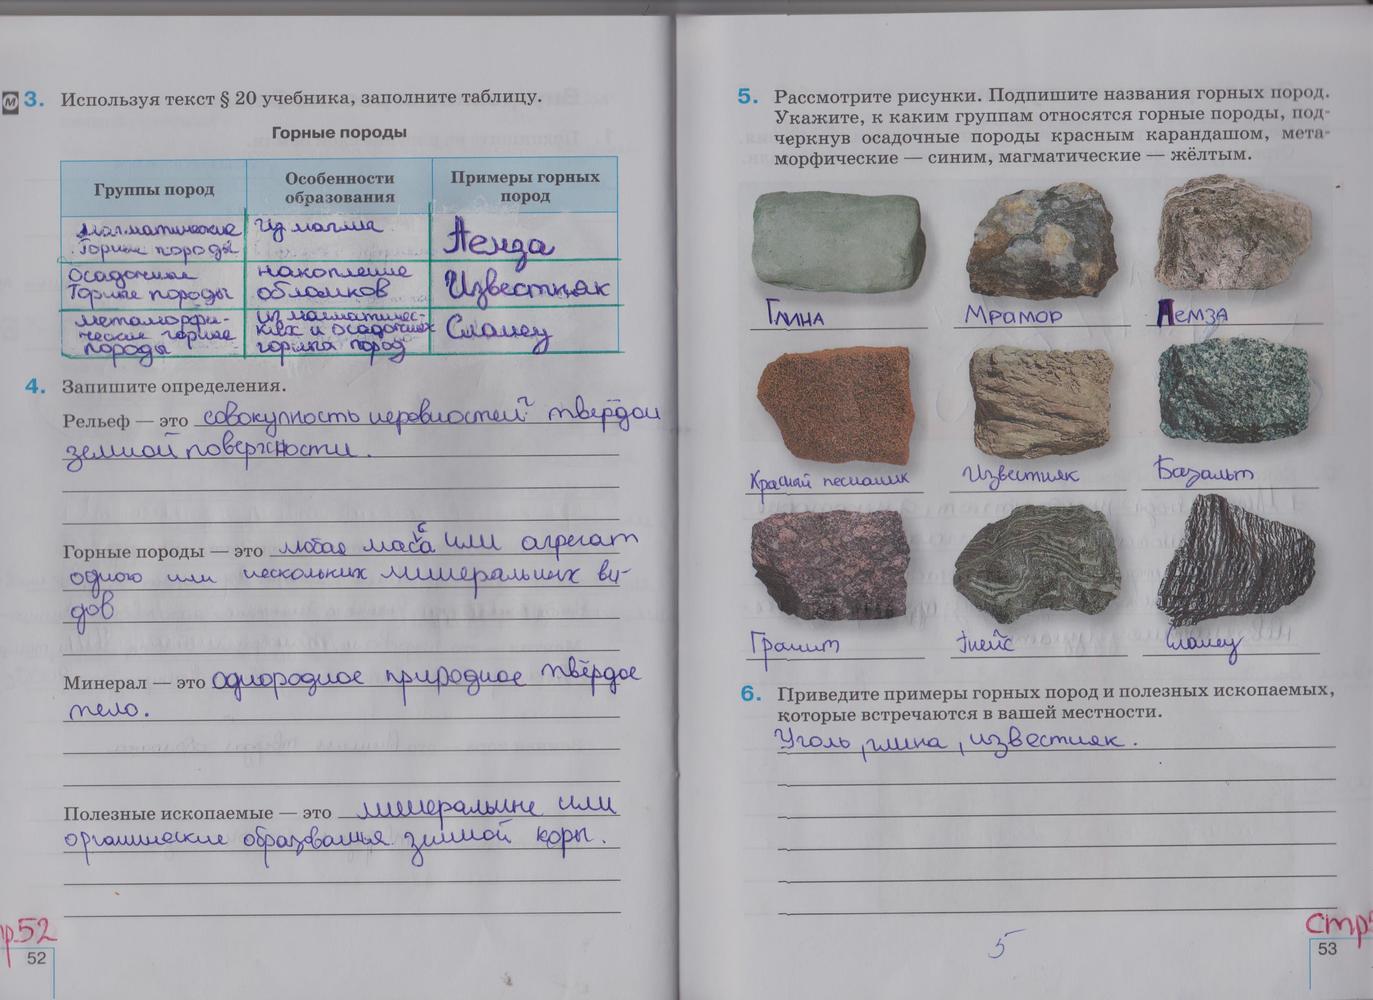 м 3. Используя текст § 20 учебника, заполните таблицу.
Горные породы
Группы пород
Особенности образования
Примеры горных пород
магматические
Горные породы
Из магмы
Пемза
Осадочные
Горные породы
накопление
обломков
Известняк
метаморфи-
ческие горные
породы
из магматичес-
ких и осадочных
горных пород
Сланец
4. Запишите определения.
Рельеф — это совокупность неровностей твёрдой
земной поверхности.
Горные породы — это любая масса или агрегат
одного или нескольких минеральных ви-
дов
Минерал — это однородное природное твёрдое
тело.
Полезные ископаемые — это минеральные или
органические образованья зимной коры.
р.52
52
5. Рассмотрите рисунки. Подпишите названия горных пород.
Укажите, к каким группам относятся горные породы, под-
черкнув осадочные породы красным карандашом, мета-
морфические — синим, магматические — жёлтым.
Глина
Мрамор
Пемза
Красный песчаник
Известняк
Базальт
Гранит
Гнейс
Сланец
6. Приведите примеры горных пород и полезных ископаемых,
которые встречаются в вашей местности.
Уголь, глина, известняк.
5
стр5
53